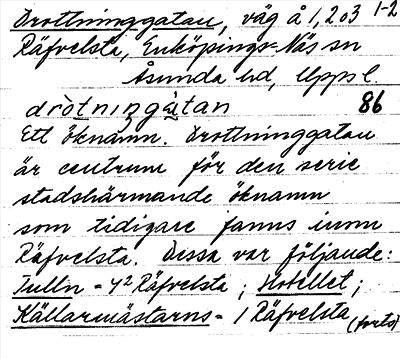 Drottninggatan, väg å 1, 2 o 3 1-2
Räfvelsta, Enköpings-Näs sn
Åsunda hd, Upps l.
dròtnıngàtan 86
Ett öknamn. Drottninggatan
är centrum för den serie
stadshärmande öknamn
som tidigare fanns inom
Räfvelsta. Dessa var följande:
Tulln = 4² Räfvelsta ; Hotellet ;
Källarmästarns = 1 Räfvelsta (forts)